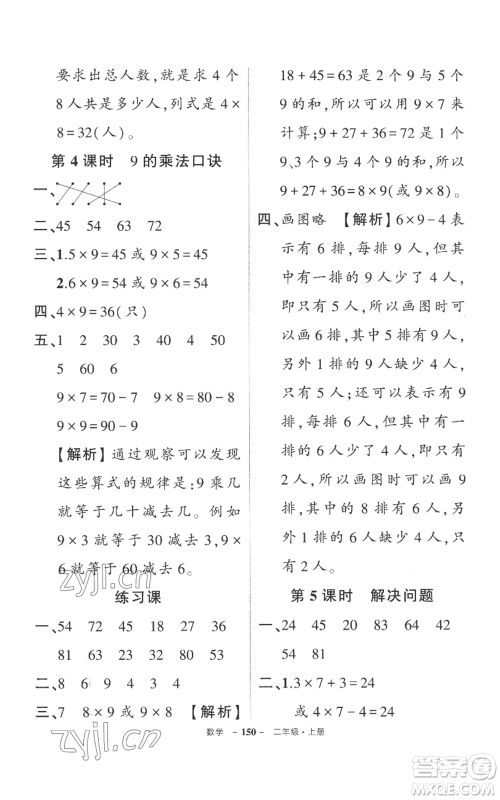 要求出总人数,就是求4个
8人共是多少人,列式是4×
8=32(人)。
第4课时 9的乘法口诀
一、
二、45 54 63 72
三、1.5×9=45或9×5=45
2.6×9=54或9×6=54
四、4×9=36(只)
五、1 2 30 3 40 4 50
5 60 6
9×7=70-7 9×8=80-8
9×9=90-9
【解析】通过观察可以发现
这些算式的规律是:9乘几
就等于几十减去几。例如
9×3就等于30减去3,9×
6就等于60减去6。
练习课
一、54 72 45 18 27 36
81 63 32 28 56 42
二、8 6 9 4 3 4
三、7 8×9或9×8 【解析】
18+45=63是2个9与5个9
的和,所以可以用9×7来
计算;9+27+36=72是1个
9、3个9与4个9的和,所以
9+27+36=72=8×9。
四、画图略 【解析】6×9-4表
示有6排,每排有9人,其
中有一排的9人少了4人,
即只有5人,所以画图时可
以画有6排,其中5排有9
人,另外1排的9人缺少4
人,即只有5人;还可以表
示有9排,每排有6人,其
中有一排的6人少了4人,
即只有2人,所以画图时可
以画有9排,其中的8排有
6人,另外1排的6人缺少4
人,即只有2人。
第5课时 解决问题
一、24 45 20 83 64 42
54 81
二、1.3×7+3=24
或4×7-4=24
数学 -150- 二年级·上册
zyjl.cn
zyjl.cn